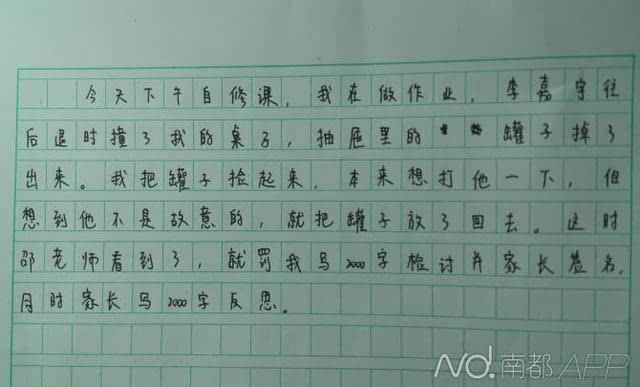 今天下午自修课，我在做作业，李嘉宇往
后退时撞了我的桌子，抽屉里的罐子掉了
出来。我把罐子捡起来，本来想打他一下，但
想到他不是故意的，就把罐子放了回去。这时
邵老师看到了，就罚我写2000字检讨并家长签名，
同时家长写2000字反思。
ND.南都APP